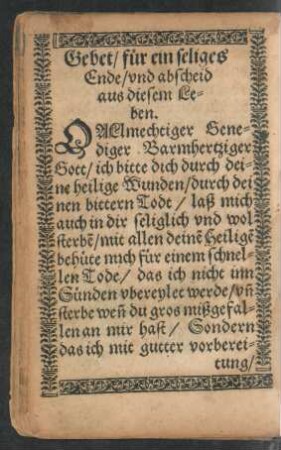 Gebet/ für ein seliges
Ende/ vnd abscheid
aus diesem Le-
ben.
O Allmechtiger Gene-
diger Barmhertziger
Gott/ ich bitte dich durch dei-
ne heilige Wunden/ durch dei
nen bittern Tode/ laß mich
auch in dir seliglich vnd wol
sterbẽ/ mit allen deinẽ Heiligẽ
behüte mich für einem schnel-
len Tode/ das ich nicht inn
Sünden vbereylet werde/ vñ
sterbe weñ du gros mißgefal-
len an mir hast/ Sondern
das ich mit gutter vorberei-
tung/